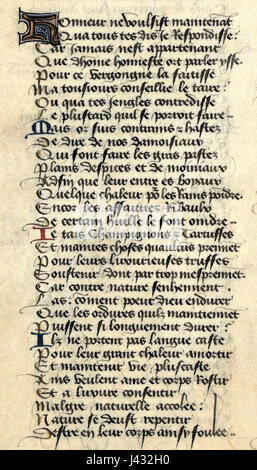 Honneur ne voulsist maintenāt
Qua tous tes dis ie Respondisse:
Car Jamais nest appartenant
Que dhōme honneste ort parler ysse.
Pour ce vergongne la faitisse
Ma tousiours conseillie le taire:
Ou qua tes iengles contredisse
Le plustard quil se porroit faire
Mais or suis contrains z hastez
De dire de nos damoisiaux
Qui font faire les gras pastez
Plains despices et de moiniaux
Affin que leur entre es boyaux
Quelque chaleur pō les rains
Encor les Ribaux
De certain huille se font
Et mantes choses quaulcuns prennent
Pour leurs livourieuses truffes
Soustenir dont par trop mesprennent.
Car contre nature senhennent.
las: cōment poeut dieu endurer
Que les ordures quilz maintiennent
Puissent si longuement durer?
Ilz ne portent pas langue caste
Pour leur grant chaleur amortir
Et maintenir vie plus caste
Ains veulent ame et corps Rostir
Et a livvure consentir
Malgre naturelle accolee:
Nature se deust repentir
Destre en leur corps ainsy foulee
alamy
J432H0